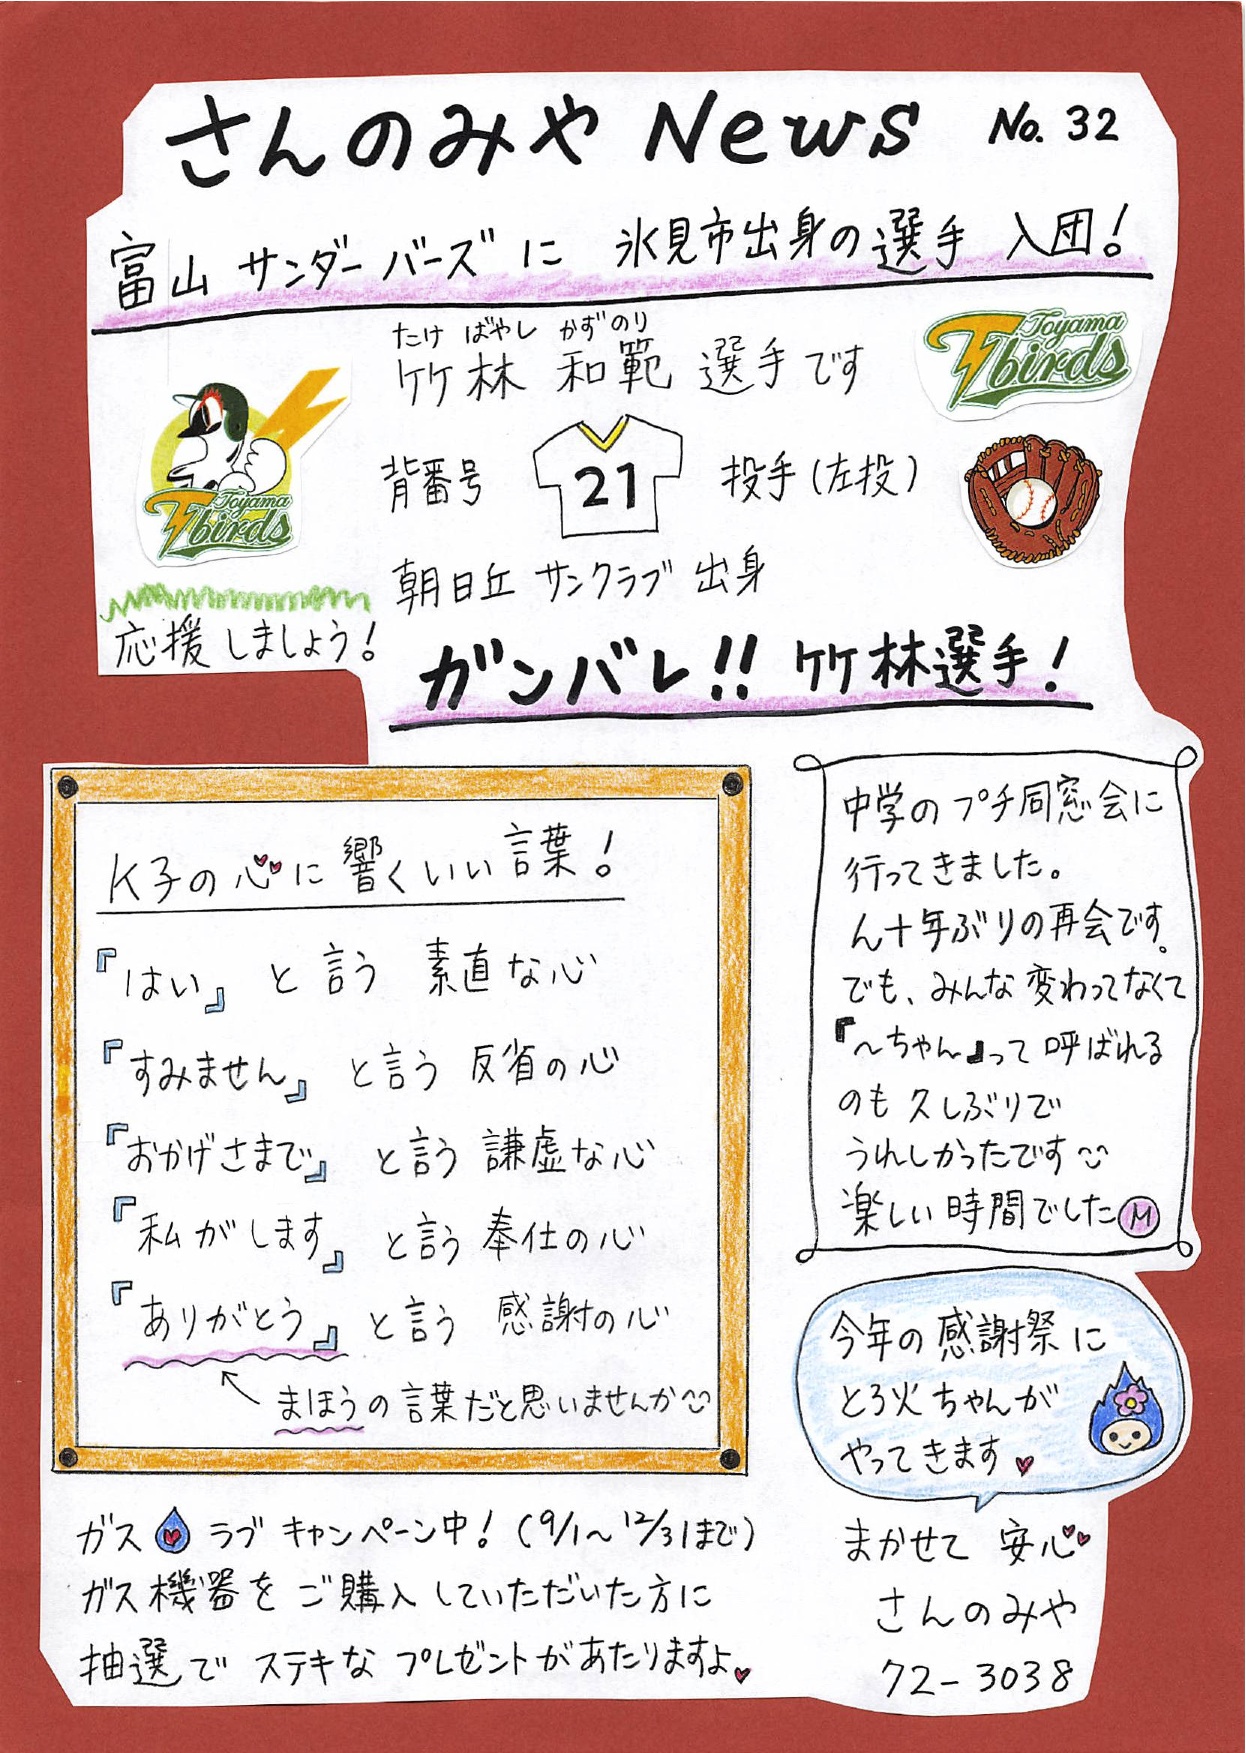 さんのみや News No. 32
富山 サンダーバーズ に 氷見市出身の選手 入団!
たけ ばやし かずのり
竹林 和範 選手です
Toyama
Tbirds
背番号 21 投手(左投)
Toyama
Tbirds
朝日丘 サンクラブ 出身
応援しましょう!
ガンバレ!! 竹林選手!
K子の心に響くいい言葉!
『はい』 と言う 素直な心
『すみません』 と言う 反省の心
『おかげさまで』 と言う 謙虚な心
『私がします』 と言う 奉仕の心
『ありがとう』 と言う 感謝の心
まほうの言葉だと思いませんか
中学のプチ同窓会に
行ってきました。
ん十年ぶりの再会です。
でも、みんな変わってなくて
『~ちゃん』って呼ばれる
のも久しぶりで
うれしかったです
楽しい時間でした M
今年の感謝祭に
とろ火ちゃんが
やってきます
ガス ラブ キャンペーン中! (9/1~12/31まで)
ガス機器をご購入していただいた方に
抽選で ステキな プレゼントがあたりますよ
まかせて 安心
さんのみや
72-3038